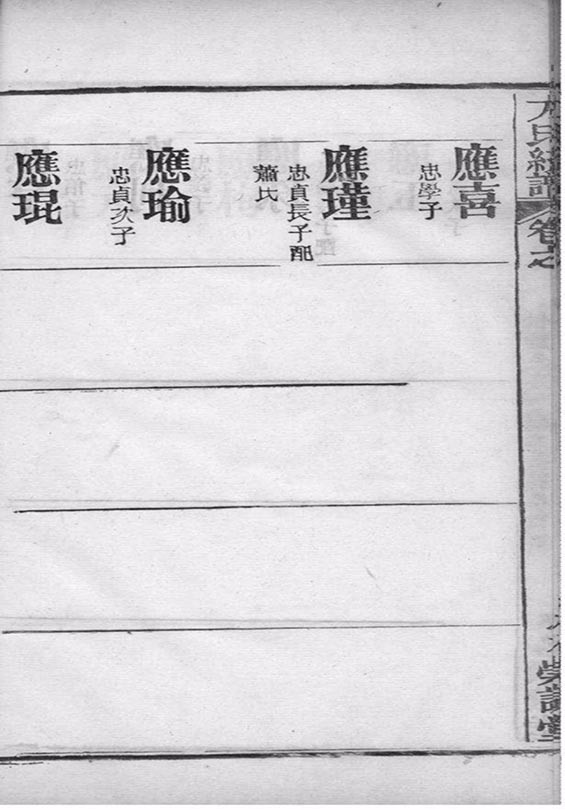 應喜
忠學子
應瑾
忠貞長子配
蕭氏
應瑜
忠貞次子
應琨